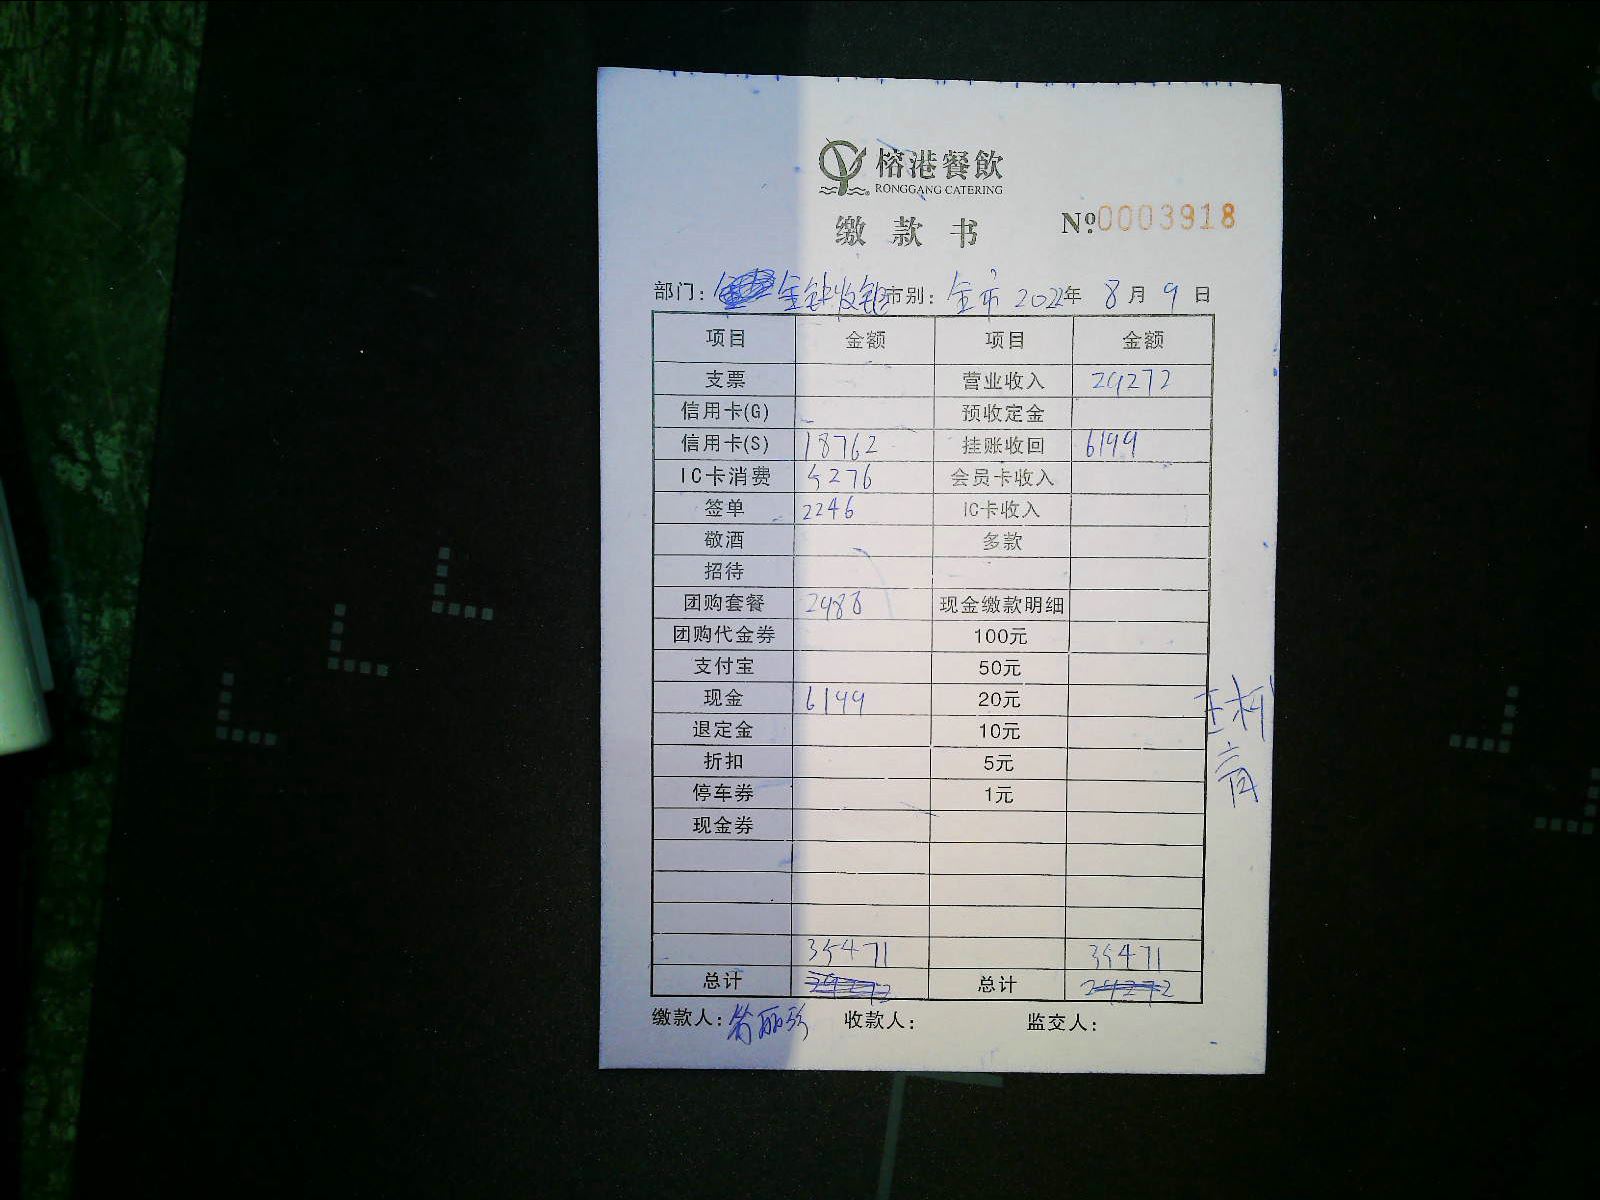 榕港餐飲
RONGGANG CATERING
缴款书 Nº:0003918
部门: 收银 市别: 全市 2022年 8月 9日
项目 金额 项目 金额
支票 营业收入 29272
信用卡(G) 预收定金
信用卡(S) 18762 挂账收回 6199
IC卡消费 5276 会员卡收入
签单 2246 IC卡收入
敬酒 多款
招待
团购套餐 2988 现金缴款明细
团购代金券 100元
支付宝 50元
现金 6199 20元
退定金 10元
折扣 5元
停车券 1元
现金券
35471 35471
总计 29272 总计 29272
缴款人: 丽珍 收款人: 监交人: